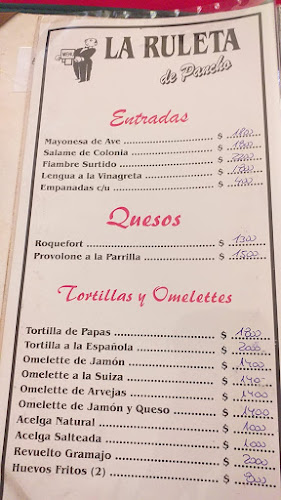 LA RULETA
de Pancho
Entradas
Mayonesa de Ave $ 1800
Salame de Colonia $ 1900
Fiambre Surtido $
Lengua a la Vinagreta $
Empanadas c/u $
Quesos
Roquefort $ 1300
Provolone a la Parrilla $ 1500
Tortillas y Omelettes
Tortilla de Papas $ 1800
Tortilla a la Española $ 2000
Omelette de Jamón $ 1400
Omelette a la Suiza $
Omelette de Arvejas $ 1400
Omelette de Jamón y Queso $ 1400
Acelga Natural $ 1000
Acelga Salteada $ 1000
Revuelto Gramajo $ 2000
Huevos Fritos (2) $